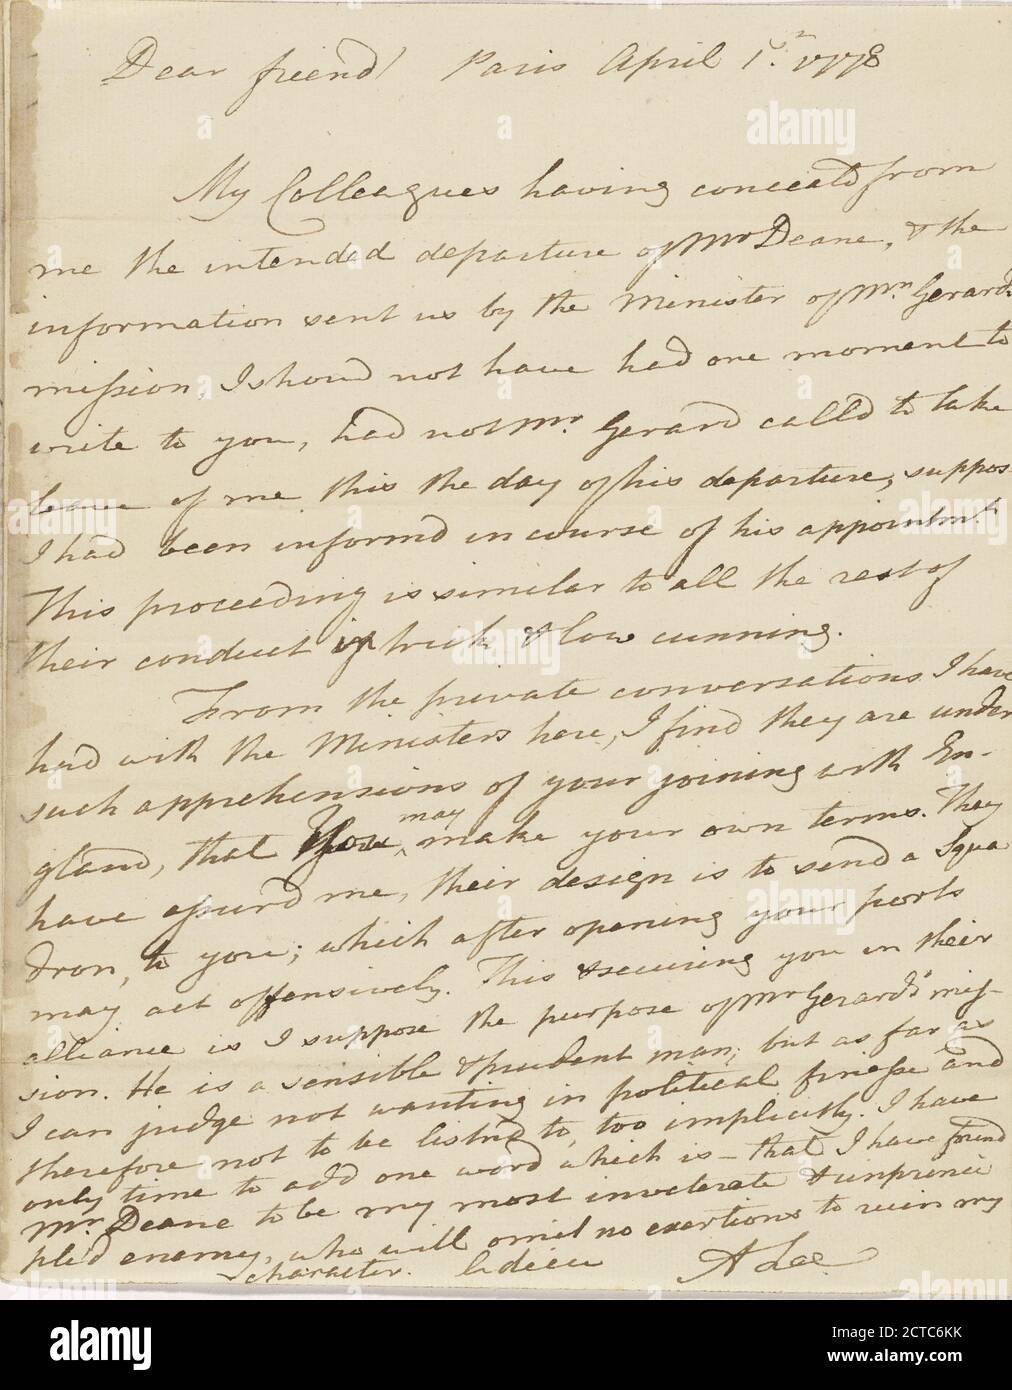 Dear friend! Paris April 1st. 1778
My Colleagues having conceald from
me the intended departure of Mr Deane, & the
information sent us by the Minister of Mr. Gerard's
mission, I shoud not have had one moment to
write to you, had not Mr. Gerard calld to take
leave of me this the day of his departure, suppos-
I had been informd in course of his appointmt.
This proceeding is similar to all the rest of
their conduct in trick & low cunning.
From the private conversations I have
had with the Ministers here, I find they are under
such apprehensions of your joining with En-
gland, that You may make your own terms. They
have assurd me, their design is to send a Squa
dron, to you; which after opening your ports
may act offensively. This & securing you in their
alliance is I suppose the purpose of Mr Gerard's mis-
sion. He is a sensible & prudent man; but as far as
I can judge not wanting in political finesse and
therefore not to be listnd to, too implicitly. I have
only time to add one word which is - that I have found
Mr. Deane to be my most inveterate & unprinci
pled enemy, who will omit no exertions to ruin my
character. Adieu A Lee
alamy
a
alamy
a
alamy
alamy
alamy
alamy
a
alamy
alamy
alamy
Image ID: 2CTC6KK
www.alamy.com